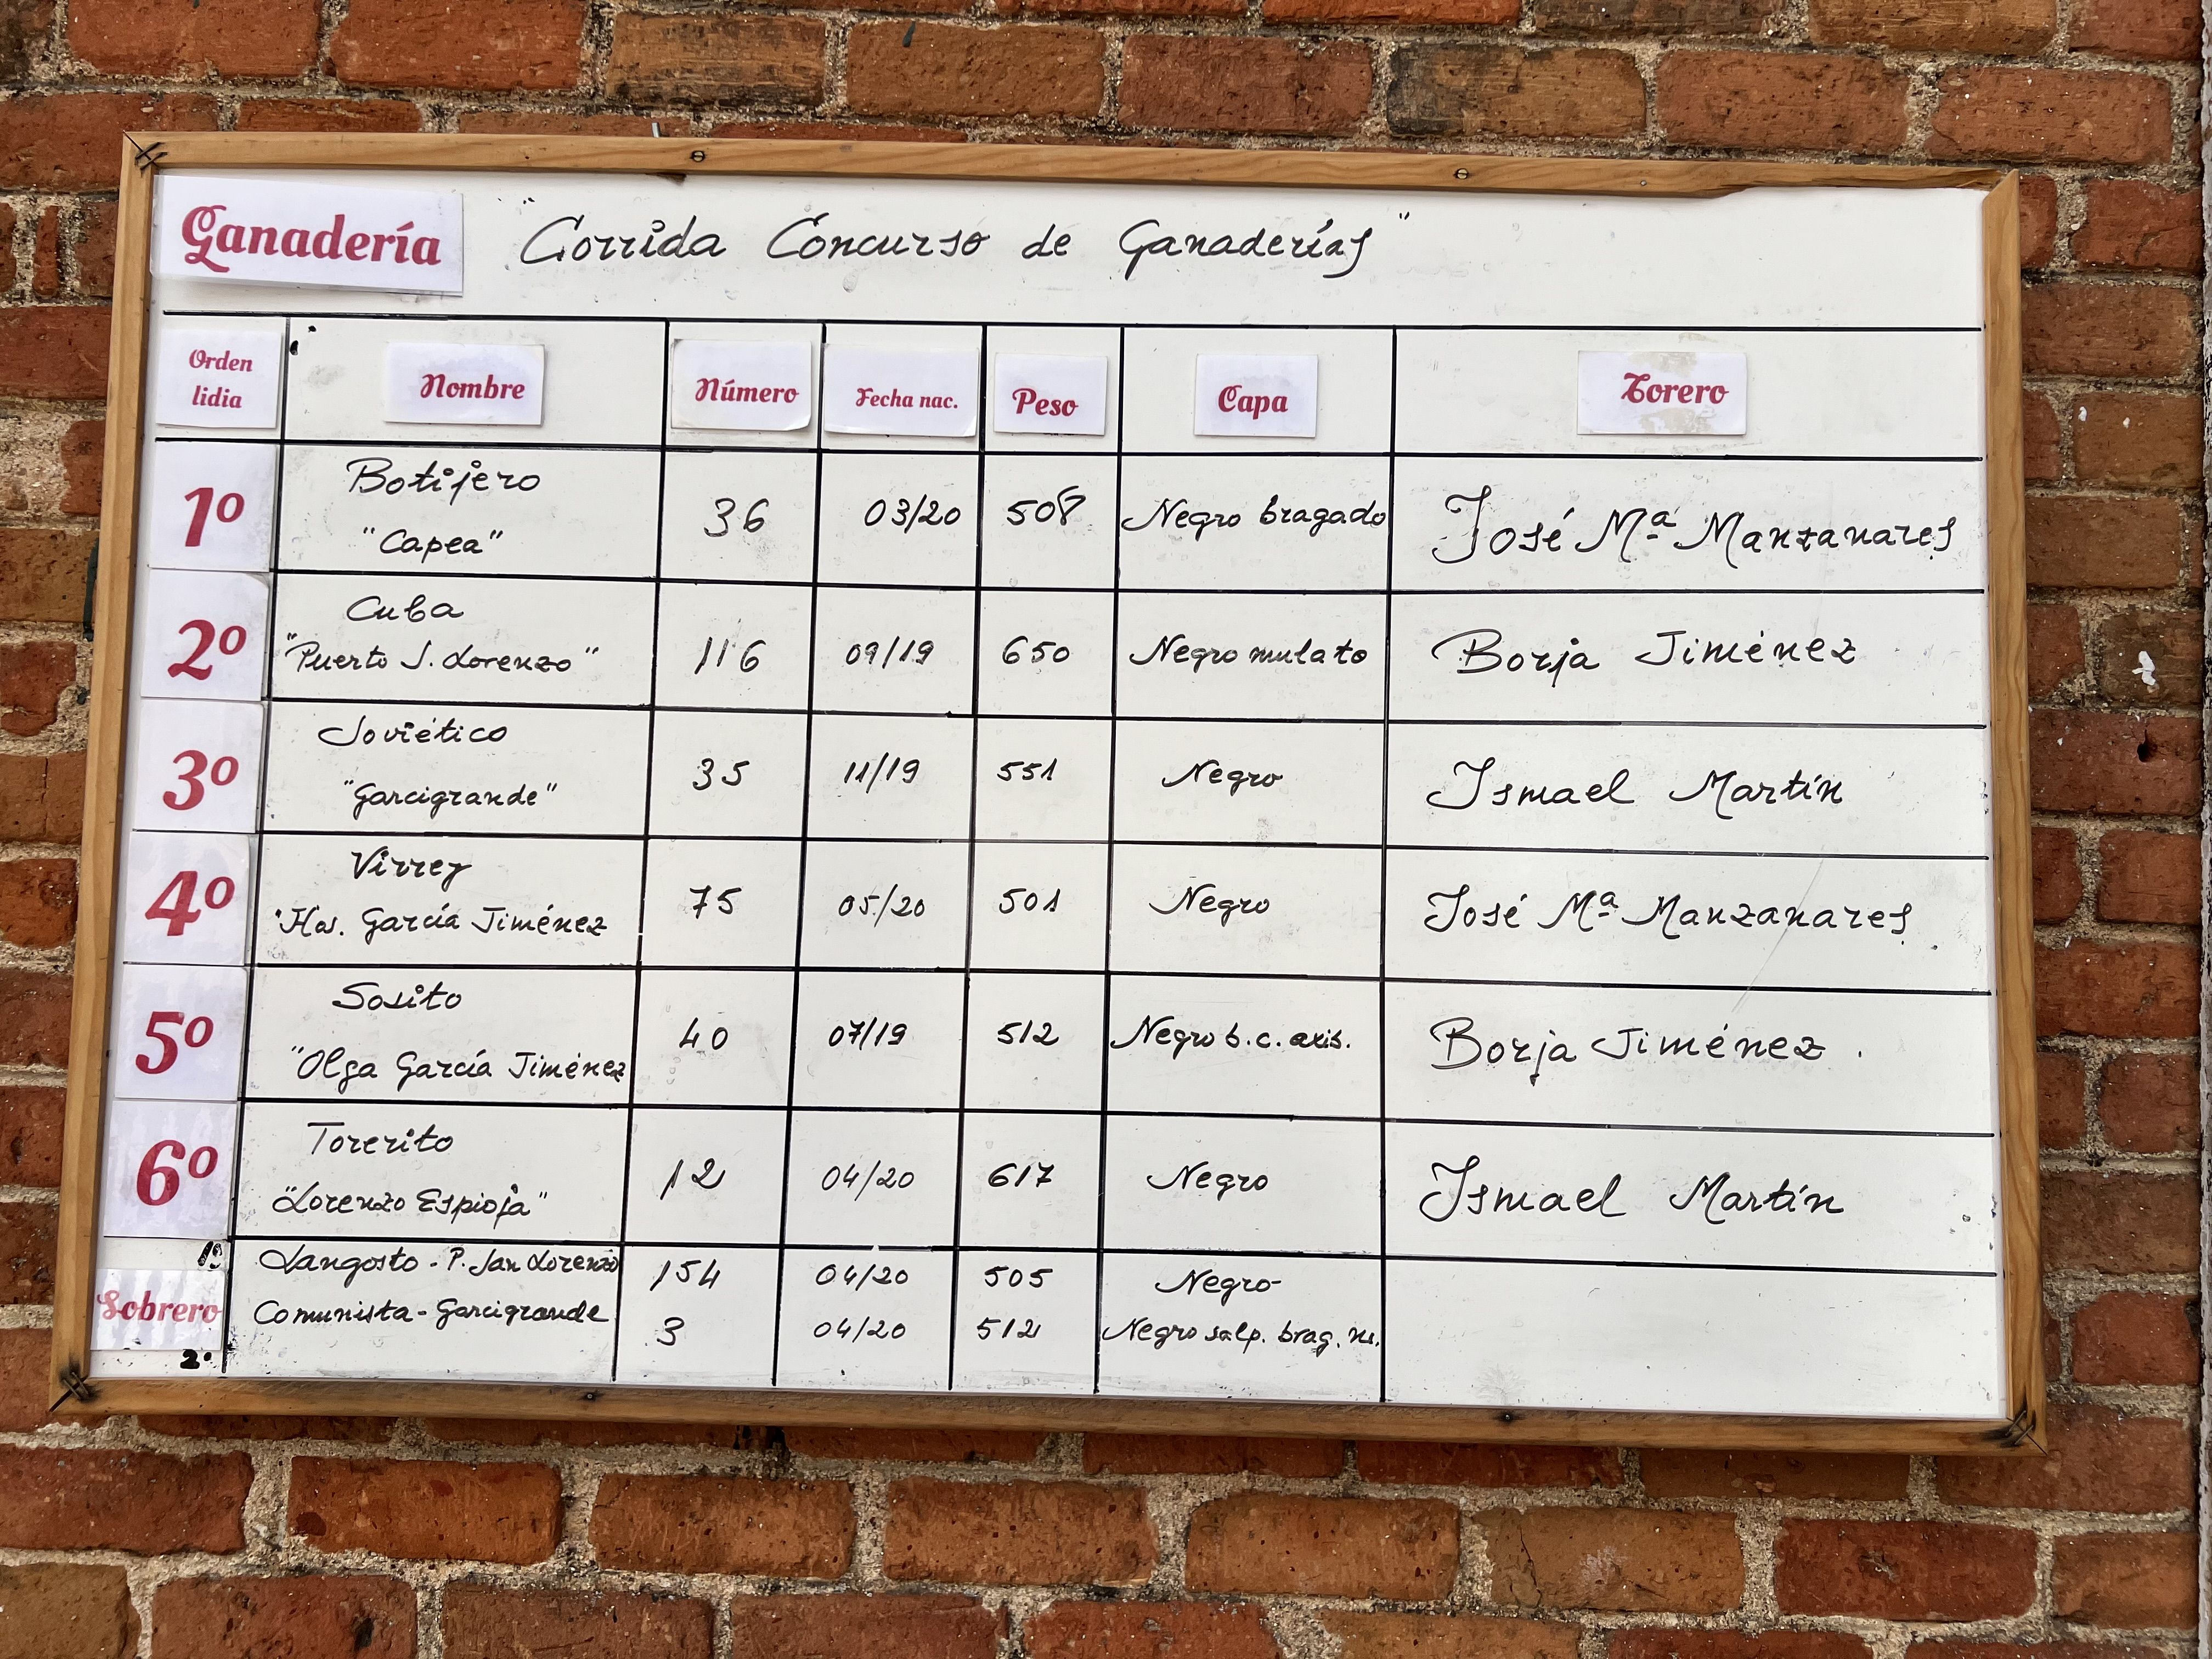 Ganadería "Corrida Concurso de Ganaderías"
Orden lidia Nombre Número Fecha nac. Peso Capa Torero
1º Botijero 36 03/20 508 Negro bragado José Mª Manzanares
"Capea"
2º Cuba 116 09/19 650 Negro mulato Borja Jiménez
"Puerto S. Lorenzo"
3º Soviético 35 11/19 551 Negro Ismael Martín
"Garcigrande"
4º Virrey 75 05/20 501 Negro José Mª Manzanares
"Hos. García Jiménez
5º Sosito 40 07/19 512 Negro b.c. axib. Borja Jiménez.
"Olga García Jiménez
6º Torerito 12 04/20 617 Negro Ismael Martín
"Lorenzo Espioja"
1º Langosto - P. San Lorenzo 154 04/20 505 Negro
Sobrero Comunista - Garcigrande 3 04/20 512 Negro salp. brag.
2º